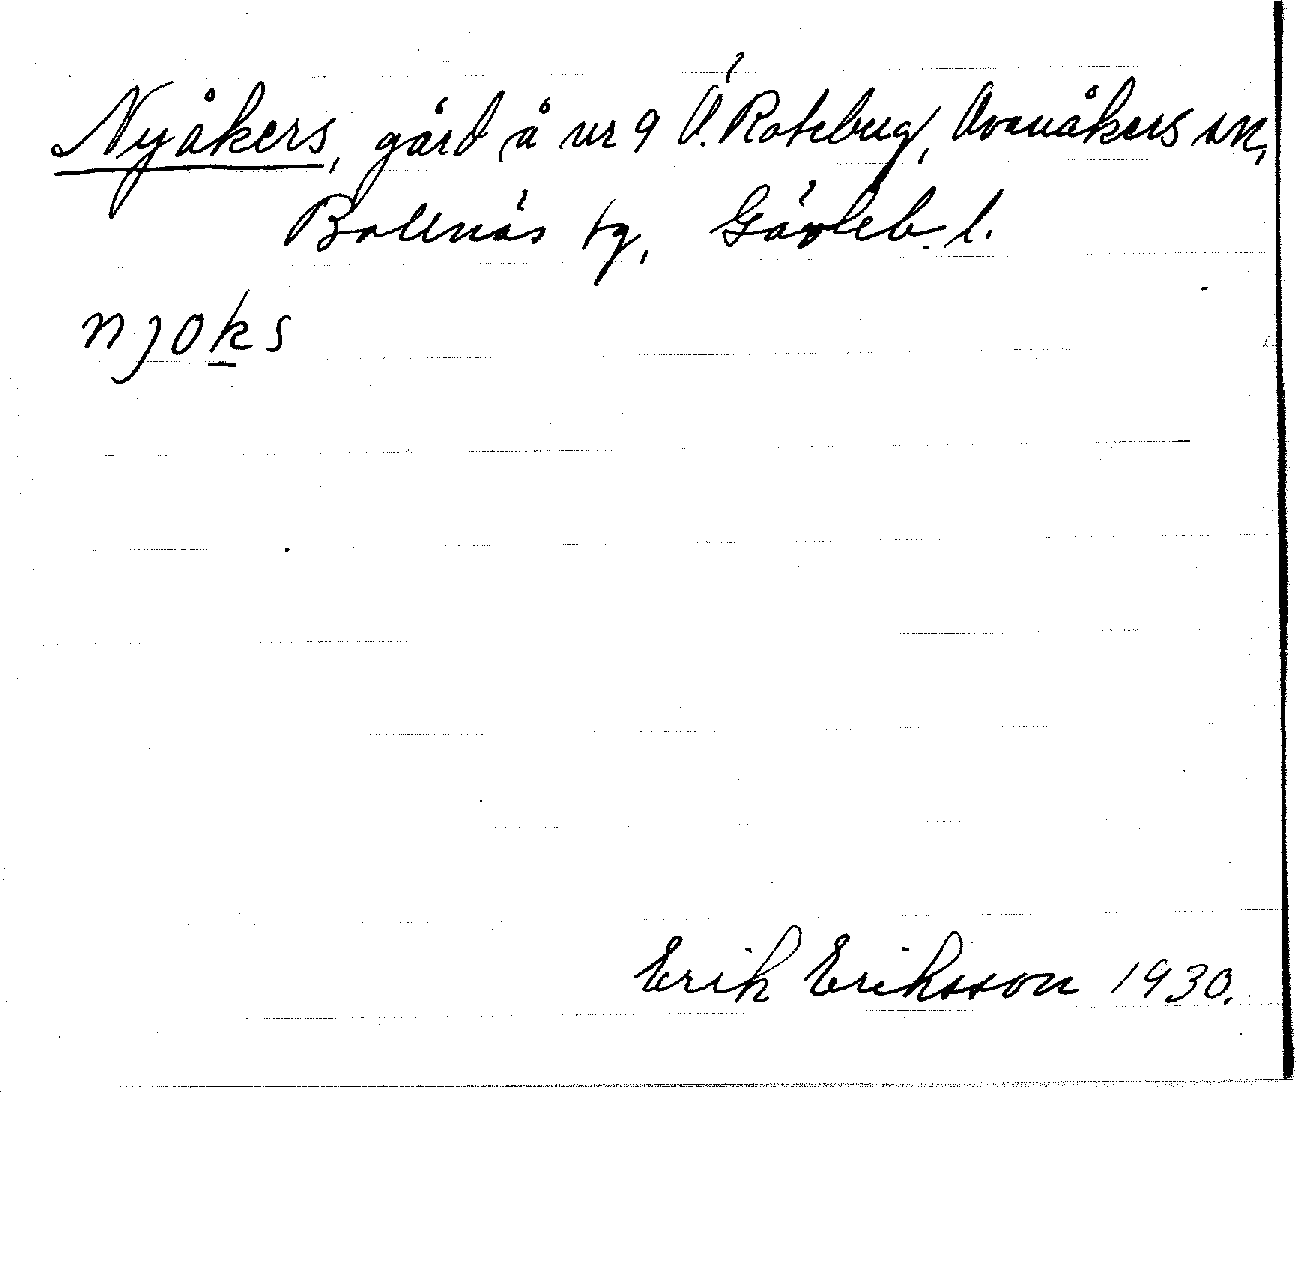 Nyåkers, gård å nr 9 Ö. Rotebug, Avanåkers sn,
Bollnäs tg, Gävleb. l.
njoks
Erik Eriksson 1930.